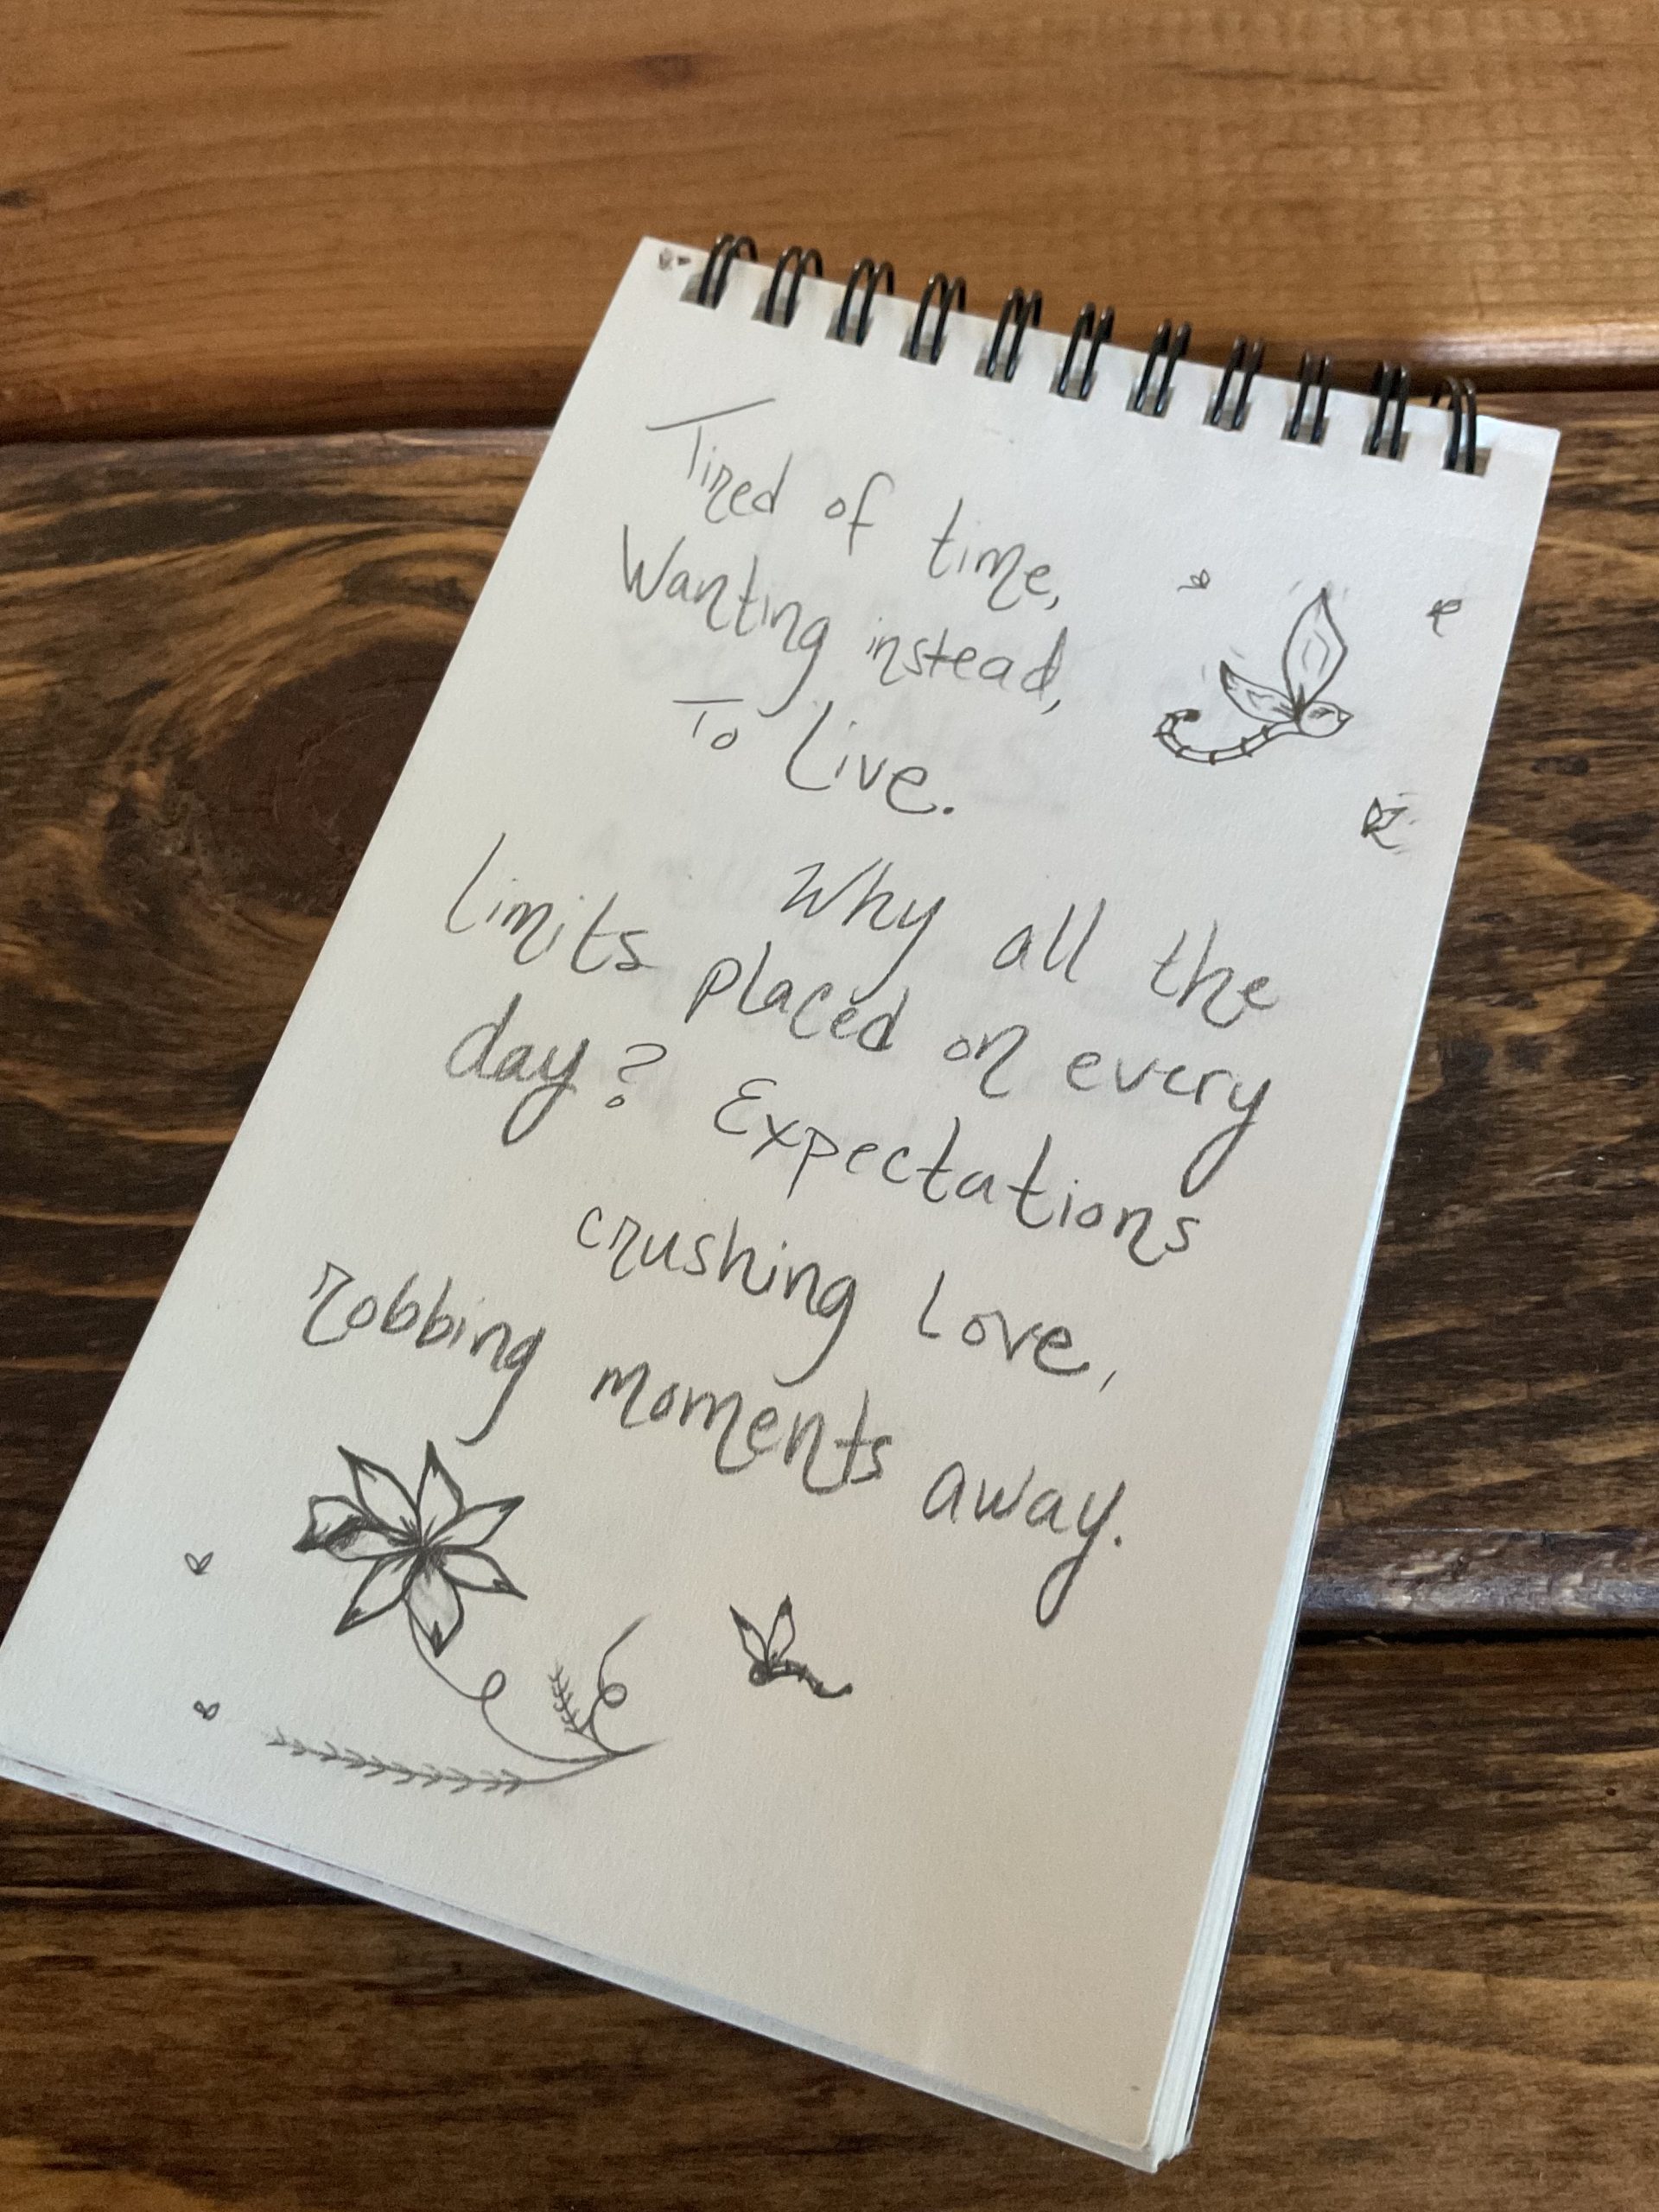 Tired of time,
Wanting instead,
To Live.
Why all the
limits placed on every
day? Expectations
crushing love,
robbing moments away.